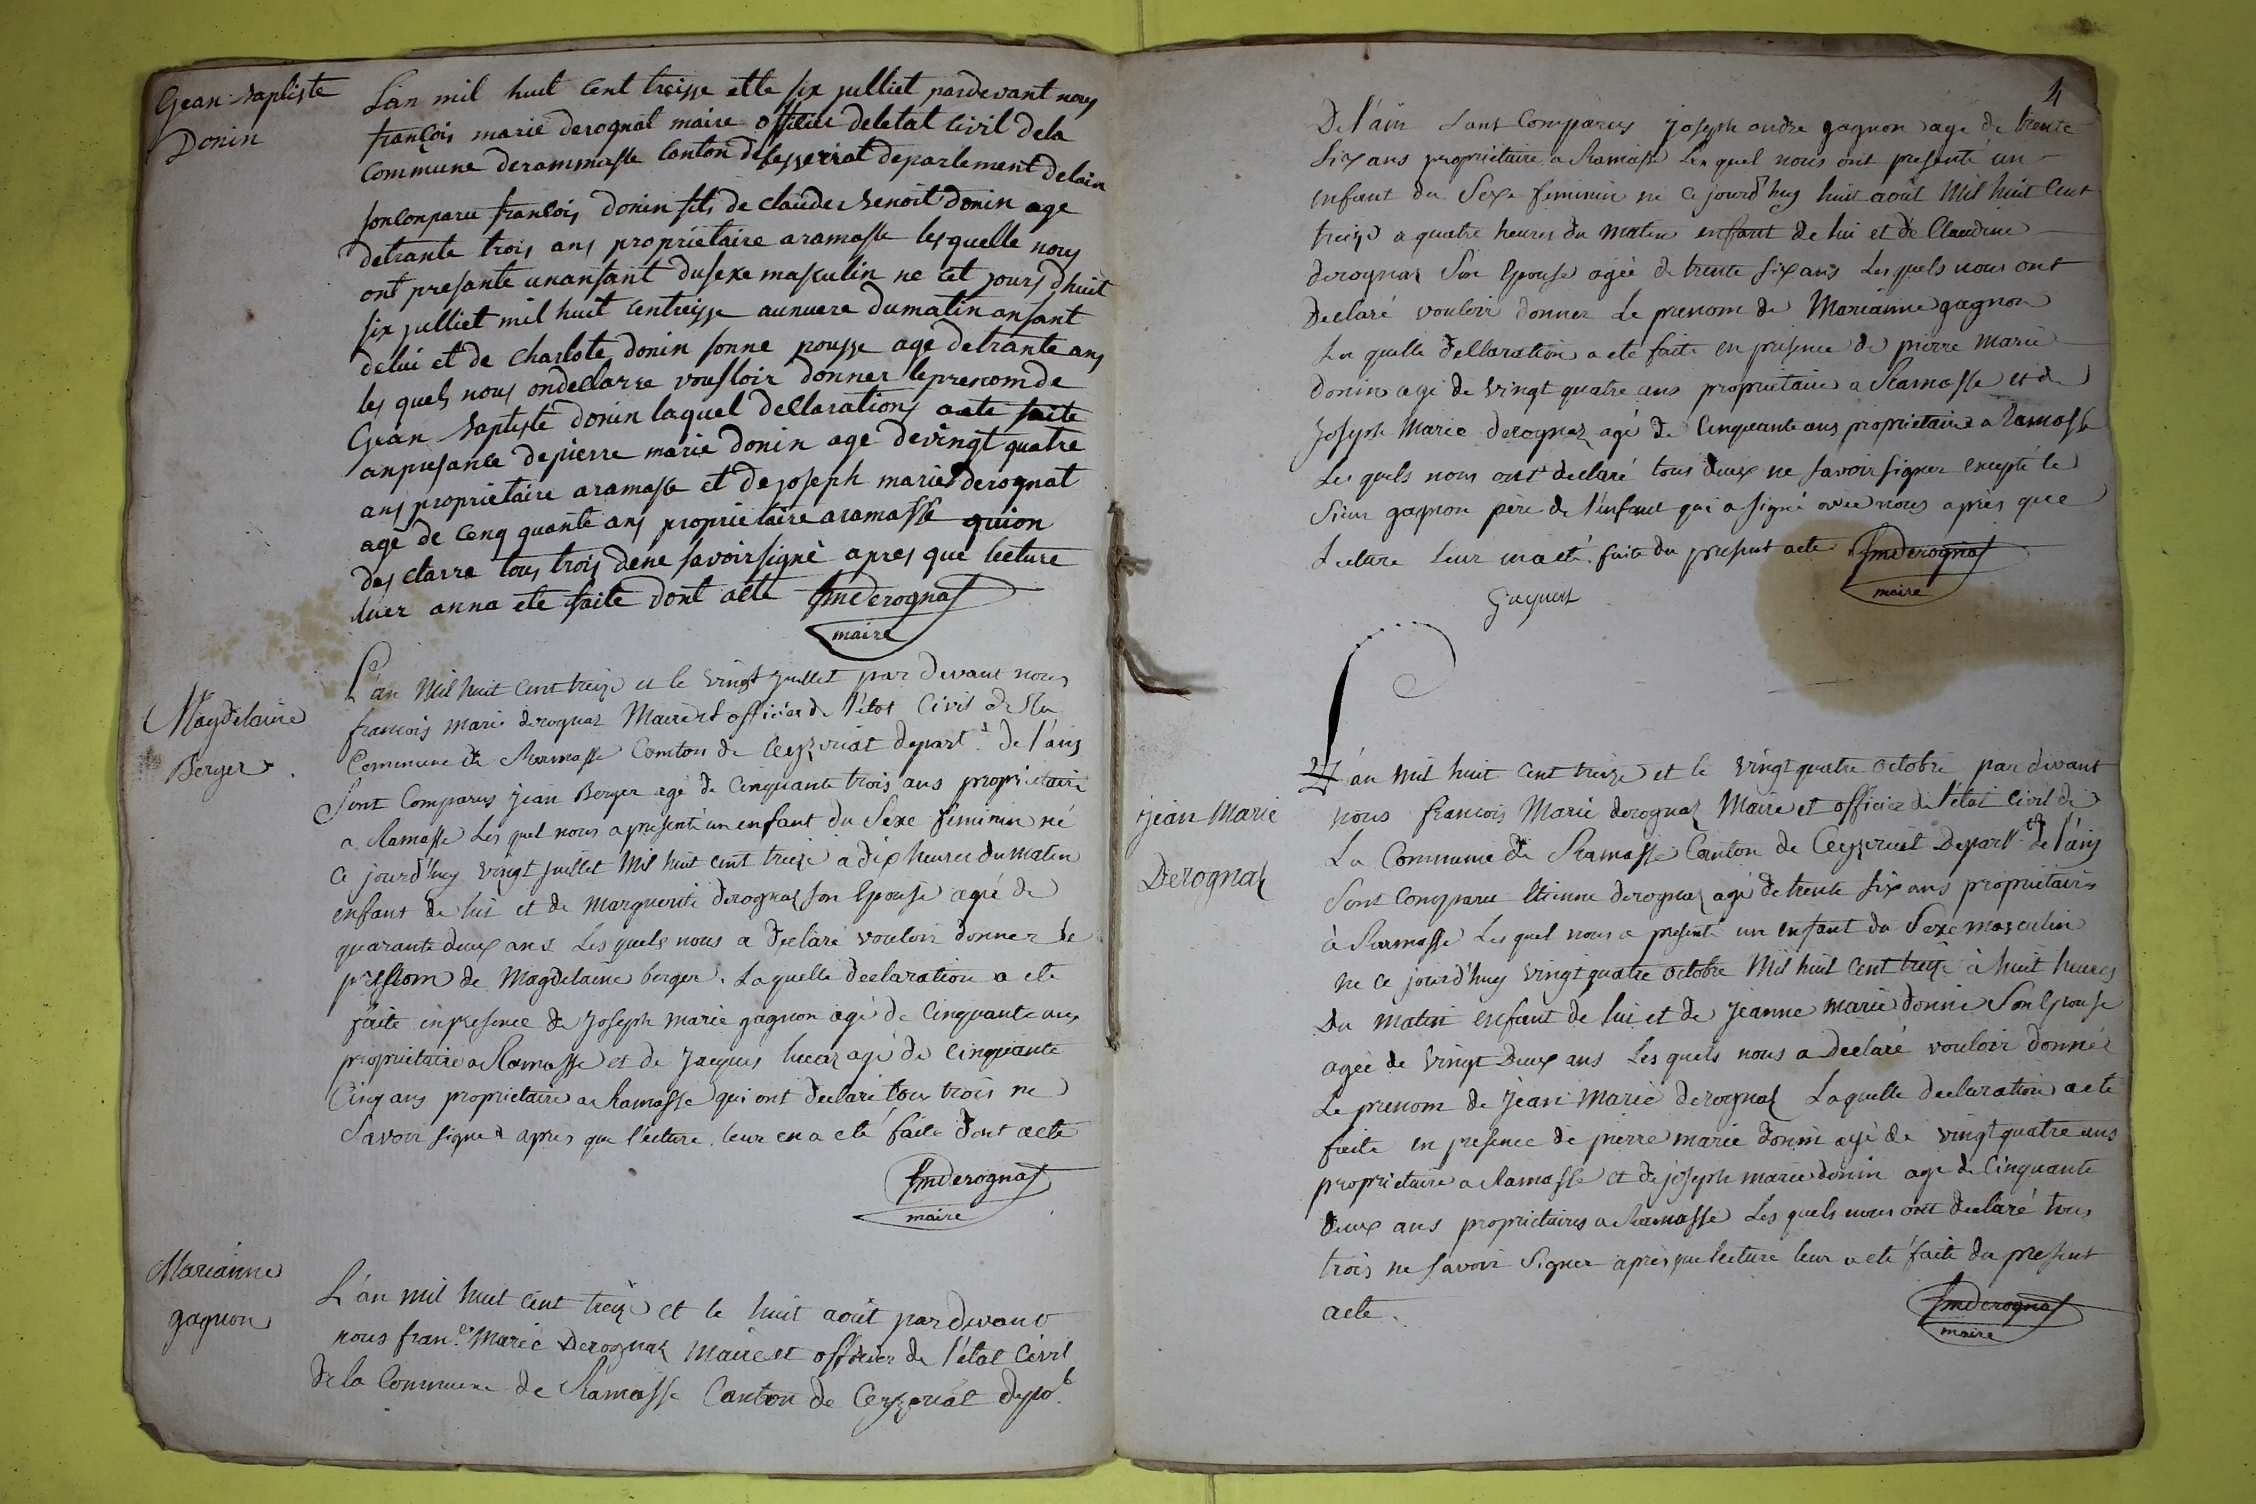 Gean Baptiste
Donin
Lan mil huit cent treisse et le six julliet pardevant nous
françois marie derognat maire officiee deletat civil dela
Commune derammasse Canton de sesseriat departement delain
sonConparu françois donin fils de claude Benoit donin age
detrante trois ans proprietaire aramasse lesquelle nous
ont presante unanfant dusexe masculin ne cet jours dhuit
six julliet mil huit Centreisse aunuere dumatin anfant
delui et de Charlote donin sonne pousse age detrante ans
les quels nous ondeclarre voulloir donner leprenom de
Gean Baptiste donin laquel declarations aete faite
anpresance depierre marie donin age devingt quatre
ans proprietaire aramasse et de joseph marie derognat
age de cenq quante ans proprietaire aramasse quion
des clarra tous trois dene savoir signè apres que lecture
luer anna ete faite dont acte fmderognat
maire
Magdelaine
Berger
L'an mil huit cent treize et le vingt juillet par devant nous
francois marie derognaz Maire et officier de l'état Civil de la
Commune de Ramasse Comton de Ceyzeriat depart.t de l'ain
Sont Comparus jean Berger agé de Cinquante trois ans proprietaire
a Ramasse Les quel nous a presenté un enfant du Sexe feminin né
Ce jourd'huy vingt juillet Mil huit cent treize a dix heures du matin
enfant de lui et de marguerite derognaz son Epouse agée de
quarante deux ans Les quels nous a declaré vouloir donner le
prenom de Magdelaine berger. Laquelle declaration a ete
faite en presence de Joseph marie gagnon agé de Cinquante ans
proprietaire a Ramasse et de Jacques lucaz agé de Cinquante
Cinq ans proprietaire a Ramasse qui ont declaré tous trois ne
Savoir signer apres que lecture leur en a eté faite dont acte
fmderognat
maire
Marianne
gagnon
L'an mil huit cent treize et le huit aout pardevant
nous fran.ois Marie Derognaz Maire et officier de l'état Civil
de la Commune de Ramasse Canton de Ceyzeriat depo.t
4
De l'ain Sont Comparus joseph andre gagnon agé de trente
Six ans proprietaire a Ramasse Les quel nous ont presenté un
enfant du Sexe feminin né Ce jourd'huy huit aout Mil huit Cent
treize a quatre heures du matin enfant de lui et de Claudine
derognaz Son Epouse agée de trente six ans Les quels nous ont
Declaré vouloir donner Le prenom de Marianne gagnon
La quelle declaration a eté faite en presence de pierre Marie
donin agé de vingt quatre ans proprietaire a Ramasse et de
Joseph Marie derognaz agé de Cinquante ans proprietaire a Ramasse
Les quels nous ont declaré tous deux ne savoir signer excepté le
Sieur gagnon père de l'enfant qui a signé avec nous après que
Lecture leur en a eté faite du present acte fmderognat
maire
Gagnon
jean Marie
Derognaz
L'an mil huit cent treize et le vingt quatre octobre par devant
nous francois Marie derognaz Maire et officier de l'état Civil de
La Commune de Ramasse Canton de Ceyzeriat Depart.t de l'ain
Sont Comparu Etienne derognaz agé de trente six ans proprietaire
à Ramasse Les quel nous a presenté un enfant du Sexe masculin
né ce jourd'huy vingt quatre octobre Mil huit Cent treize à huit heures
Du matin enfant de lui et de jeanne marie donnin Son Epouse
agée de vingt Deux ans Les quels nous a Declaré vouloir donner
Le prenom de jean Marie derognaz Laquelle declaration a eté
faite en presence de pierre marie donin agé de vingt quatre ans
proprietaire a Ramasse et de joseph marie donin agé de Cinquante
deux ans proprietaires a Ramasse Les quels nous ont declaré tous
trois ne savoir Signer après que lecture leur a eté faite du present
acte.
fmderognat
maire